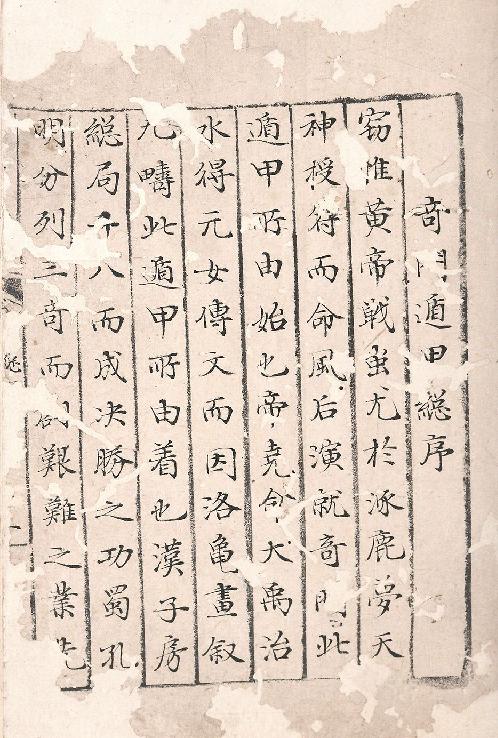 奇門遁甲総序
窃惟黄帝戦蚩尤於涿鹿夢天
神授符而命風后演就奇門此
遁甲所由始也帝堯命大禹治
水得元女傳文而因洛亀畫叙
九疇此遁甲所由着也漢子房
総局千八而成决勝之功蜀孔
明分列三奇而創艱難之業